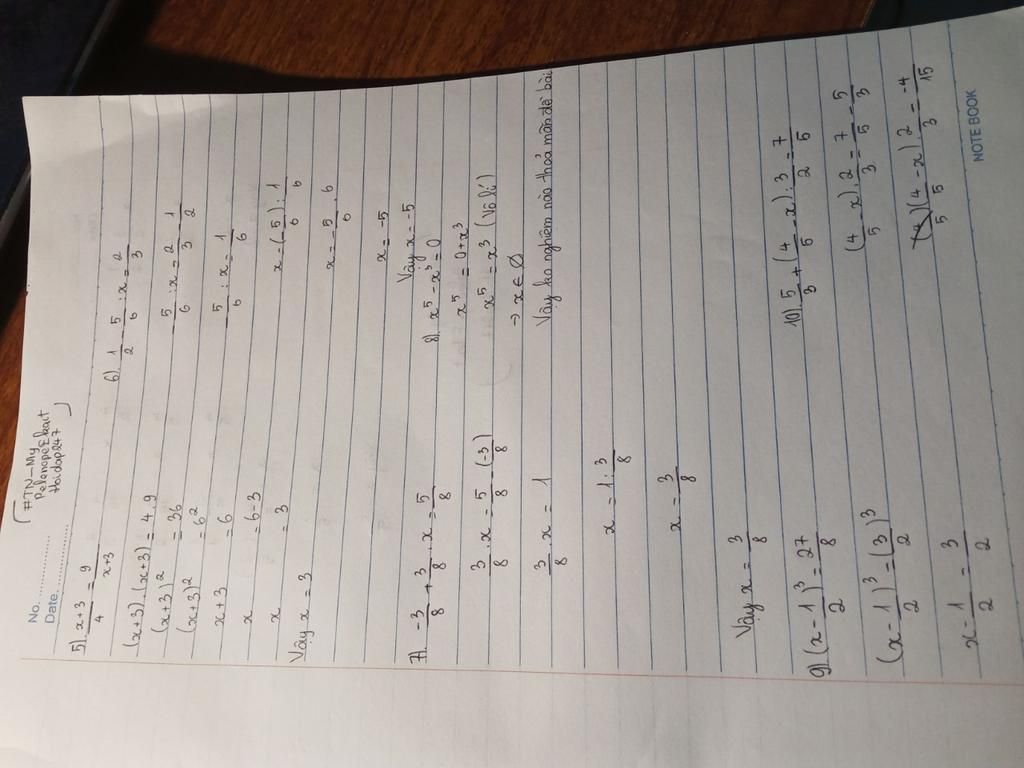 No. ............
Date. ............
#TN-My
PelanopeEkait
Hoidap247
5) x+3/4 = 9/x+3
(x+3).(x+3) = 4.9
(x+3)² = 36
(x+3)² = 6²
x+3 = 6
x = 6-3
x = 3
Vậy x = 3
6) 1/2 - 5/6 : x = 2/3
5/6 : x = 2/3 - 1/2
5/6 : x = 1/6
x = (5/6) : 1/6
x = 5/6 . 6
x = -5
Vậy x = -5
7) -3/8 + 3/8 . x = 5/8
3/8 . x = 5/8 - (-3/8)
3/8 . x = 1
x = 1 : 3/8
x = 3/8
Vậy x = 3/8
8) x⁵ - x³ = 0
x⁵ = 0 + x³
x⁵ = x³ (Vô lí)
→ x ∈ ∅
Vậy ko nghiệm nào thoả mãn đề bài
9) (x - 1/2)³ = 27/8
(x - 1/2)³ = (3/2)³
x - 1/2 = 3/2
10) 5/3 + (4/5 - x) : 3/2 = 7/5
(4/5 - x) . 2/3 = 7/5 - 5/3
(4/5 - x) 2/3 = -4/15
NOTE BOOK